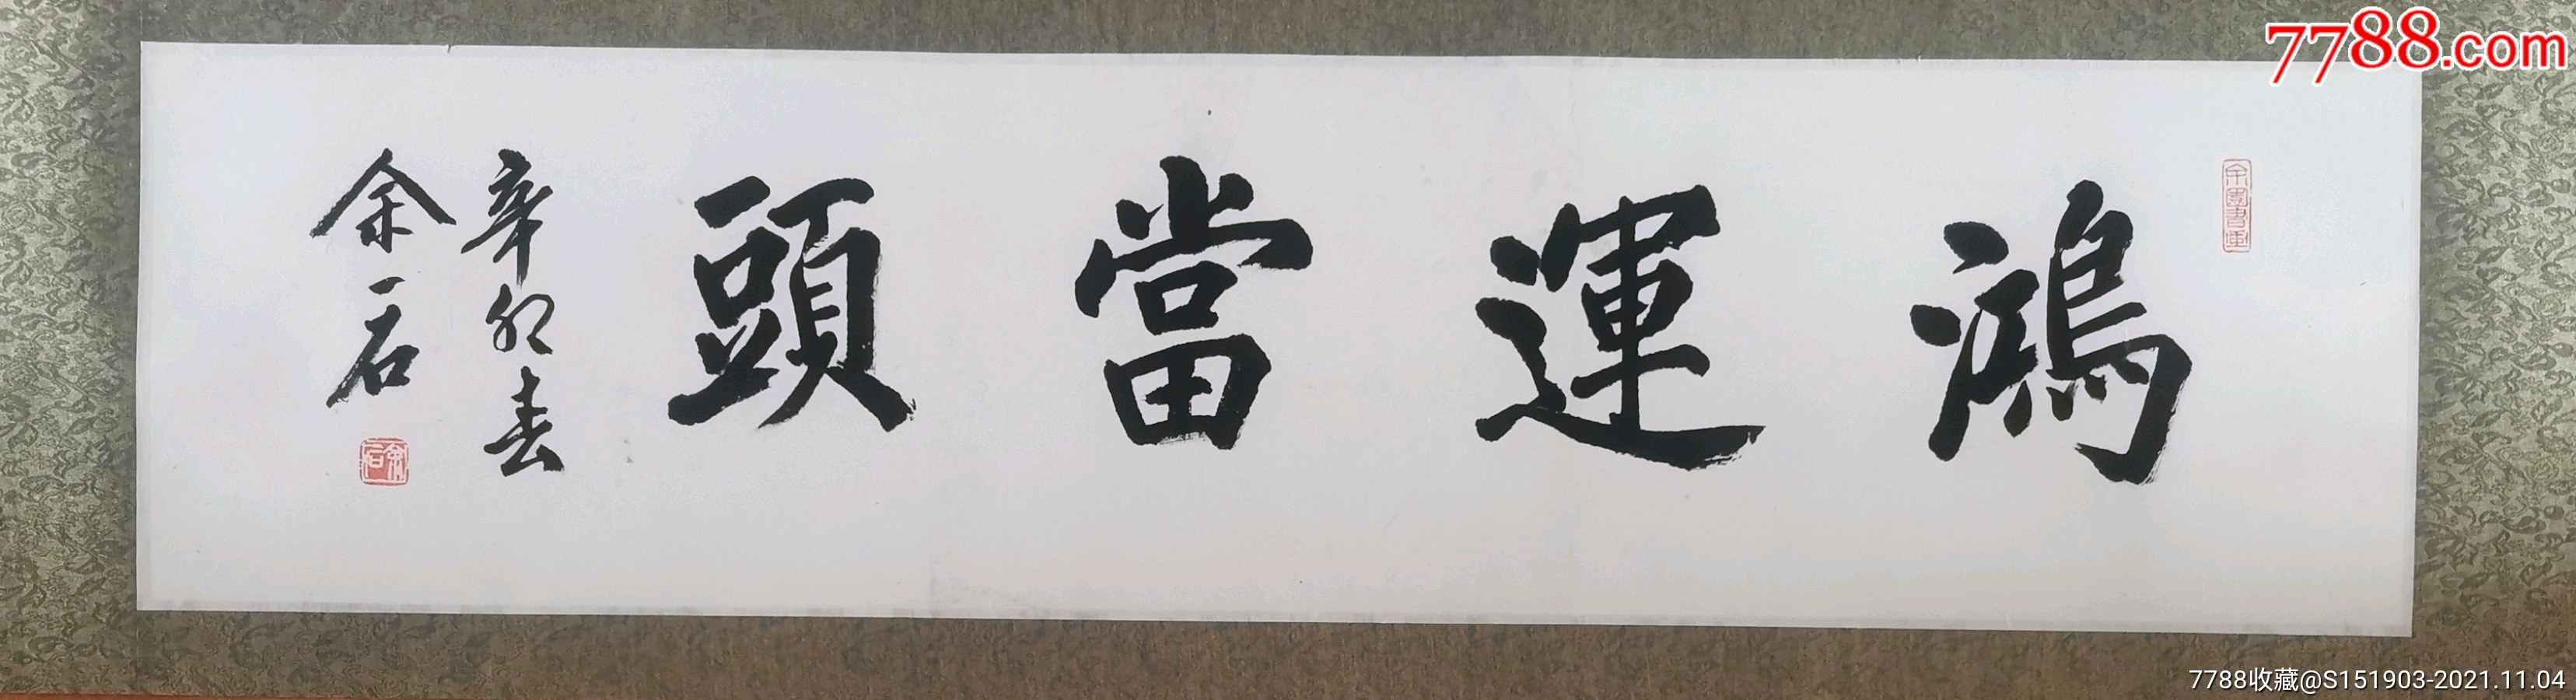 7788.com
鴻運當頭
辛卯春
余石
7788收藏@S151903-2021.11.04